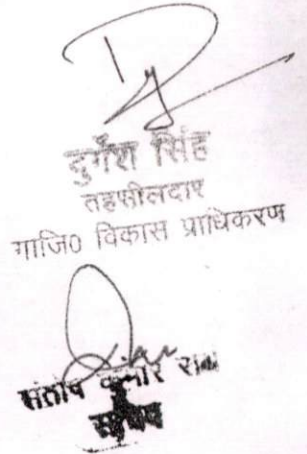 दुर्गेश सिंह
तहसीलदार
गाजि० विकास प्राधिकरण
संतोष कुमार राय
सचिव